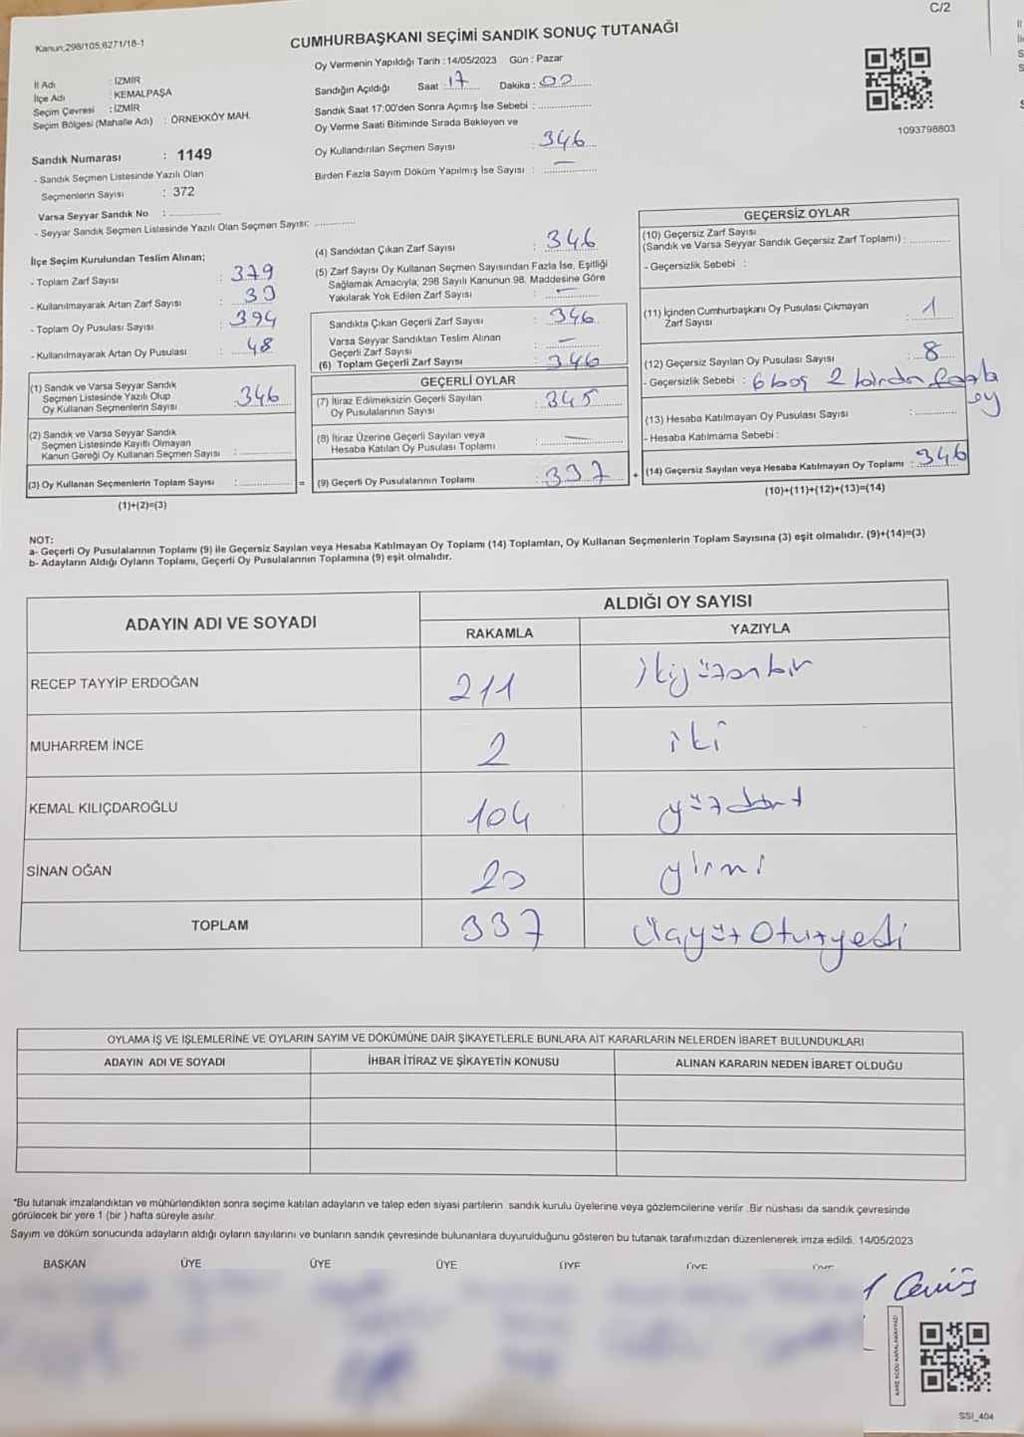 C/2
Kanun:298/105,6271/18-1
CUMHURBAŞKANI SEÇİMİ SANDIK SONUÇ TUTANAĞI
Oy Vermenin Yapıldığı Tarih : 14/05/2023 Gün : Pazar
İl Adı : İZMİR
İlçe Adı : KEMALPAŞA
Seçim Çevresi : İZMİR
Seçim Bölgesi (Mahalle Adı) : ÖRNEKKÖY MAH.
Sandık Numarası : 1149
- Sandık Seçmen Listesinde Yazılı Olan
Seçmenlerin Sayısı : 372
Varsa Seyyar Sandık No :
- Seyyar Sandık Seçmen Listesinde Yazılı Olan Seçmen Sayısı:
Sandığın Açıldığı Saat : 17 Dakika : 00
Sandık Saat 17:00'den Sonra Açımış İse Sebebi :
Oy Verme Saati Bitiminde Sırada Bekleyen ve
Oy Kullandırılan Seçmen Sayısı : 346
Birden Fazla Sayım Döküm Yapılmış İse Sayısı : —
1093798803
İlçe Seçim Kurulundan Teslim Alınan;
- Toplam Zarf Sayısı : 379
- Kullanılmayarak Artan Zarf Sayısı : 33
- Toplam Oy Pusulası Sayısı : 394
- Kullanılmayarak Artan Oy Pusulası : 48
(1) Sandık ve Varsa Seyyar Sandık
Seçmen Listesinde Yazılı Olup
Oy Kullanan Seçmenlerin Sayısı : 346
(2) Sandık ve Varsa Seyyar Sandık
Seçmen Listesinde Kayıtlı Olmayan
Kanun Gereği Oy Kullanan Seçmen Sayısı :
(3) Oy Kullanan Seçmenlerin Toplam Sayısı : =
(1)+(2)=(3)
(4) Sandıktan Çıkan Zarf Sayısı : 346
(5) Zarf Sayısı Oy Kullanan Seçmen Sayısından Fazla İse, Eşitliği
Sağlamak Amacıyla; 298 Sayılı Kanunun 98. Maddesine Göre
Yakılarak Yok Edilen Zarf Sayısı : —
Sandıkta Çıkan Geçerli Zarf Sayısı : 346
Varsa Seyyar Sandıktan Teslim Alınan
Geçerli Zarf Sayısı : —
(6) Toplam Geçerli Zarf Sayısı : 346
GEÇERLİ OYLAR
(7) İtiraz Edilmeksizin Geçerli Sayılan
Oy Pusulalarının Sayısı : 345
(8) İtiraz Üzerine Geçerli Sayılan veya
Hesaba Katılan Oy Pusulası Toplamı : —
(9) Geçerli Oy Pusulalarının Toplamı : 337 +
GEÇERSİZ OYLAR
(10) Geçersiz Zarf Sayısı
(Sandık ve Varsa Seyyar Sandık Geçersiz Zarf Toplamı) :
- Geçersizlik Sebebi :
(11) İçinden Cumhurbaşkanı Oy Pusulası Çıkmayan
Zarf Sayısı : 1
(12) Geçersiz Sayılan Oy Pusulası Sayısı : 8
- Geçersizlik Sebebi : 6 boş 2 birden fazla
oy
(13) Hesaba Katılmayan Oy Pusulası Sayısı :
- Hesaba Katılmama Sebebi :
(14) Geçersiz Sayılan veya Hesaba Katılmayan Oy Toplamı : 346
(10)+(11)+(12)+(13)=(14)
NOT:
a- Geçerli Oy Pusulalarının Toplamı (9) ile Geçersiz Sayılan veya Hesaba Katılmayan Oy Toplamı (14) Toplamları, Oy Kullanan Seçmenlerin Toplam Sayısına (3) eşit olmalıdır. (9)+(14)=(3)
b- Adayların Aldığı Oyların Toplamı, Geçerli Oy Pusulalarının Toplamına (9) eşit olmalıdır.
ADAYIN ADI VE SOYADI
ALDIĞI OY SAYISI
RAKAMLA YAZIYLA
RECEP TAYYİP ERDOĞAN 211 İkiyüzonbir
MUHARREM İNCE 2 iki
KEMAL KILIÇDAROĞLU 104 yüzdört
SİNAN OĞAN 20 yirmi
TOPLAM 337 Üçyüz Otuzyedi
OYLAMA İŞ VE İŞLEMLERİNE VE OYLARIN SAYIM VE DÖKÜMÜNE DAİR ŞİKAYETLERLE BUNLARA AİT KARARLARIN NELERDEN İBARET BULUNDUKLARI
ADAYIN ADI VE SOYADI İHBAR İTİRAZ VE ŞİKAYETİN KONUSU ALINAN KARARIN NEDEN İBARET OLDUĞU
*Bu tutanak imzalandıktan ve mühürlendikten sonra seçime katılan adayların ve talep eden siyasi partilerin sandık kurulu üyelerine veya gözlemcilerine verilir. Bir nüshası da sandık çevresinde
görülecek bir yere 1 (bir ) hafta süreyle asılır.
Sayım ve döküm sonucunda adayların aldığı oyların sayılarını ve bunların sandık çevresinde bulunanlara duyurulduğunu gösteren bu tutanak tarafımızdan düzenlenerek imza edildi. 14/05/2023
BAŞKAN ÜYE ÜYE ÜYE ÜYE ÜYE ÜYE
SSI_404